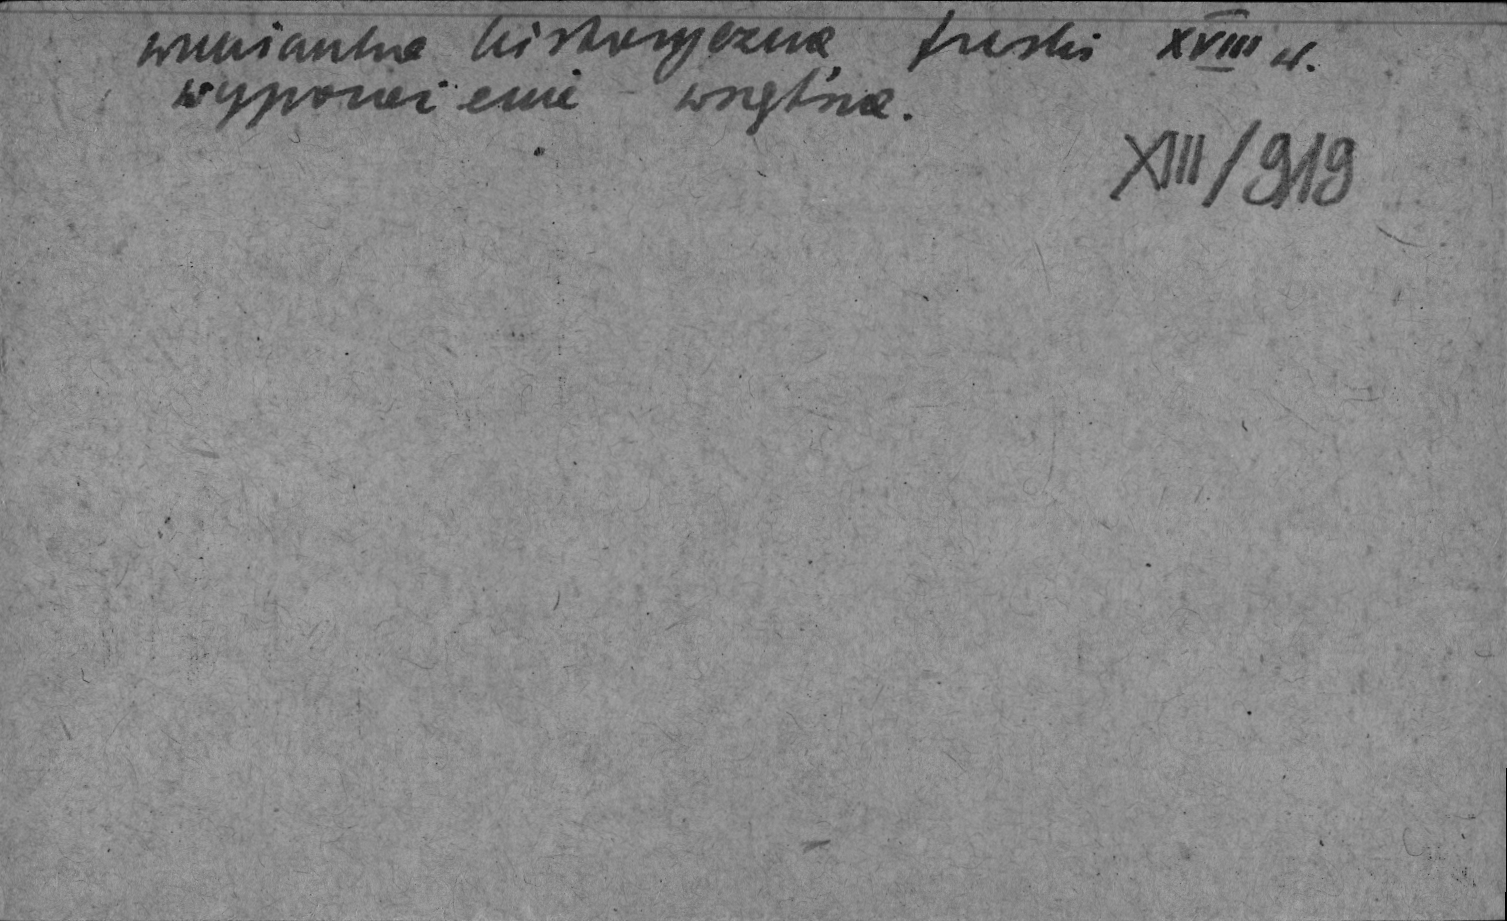 wzmianka historyczna, freski XVIII w.
wyposażenie wnętrza.
XIII/919